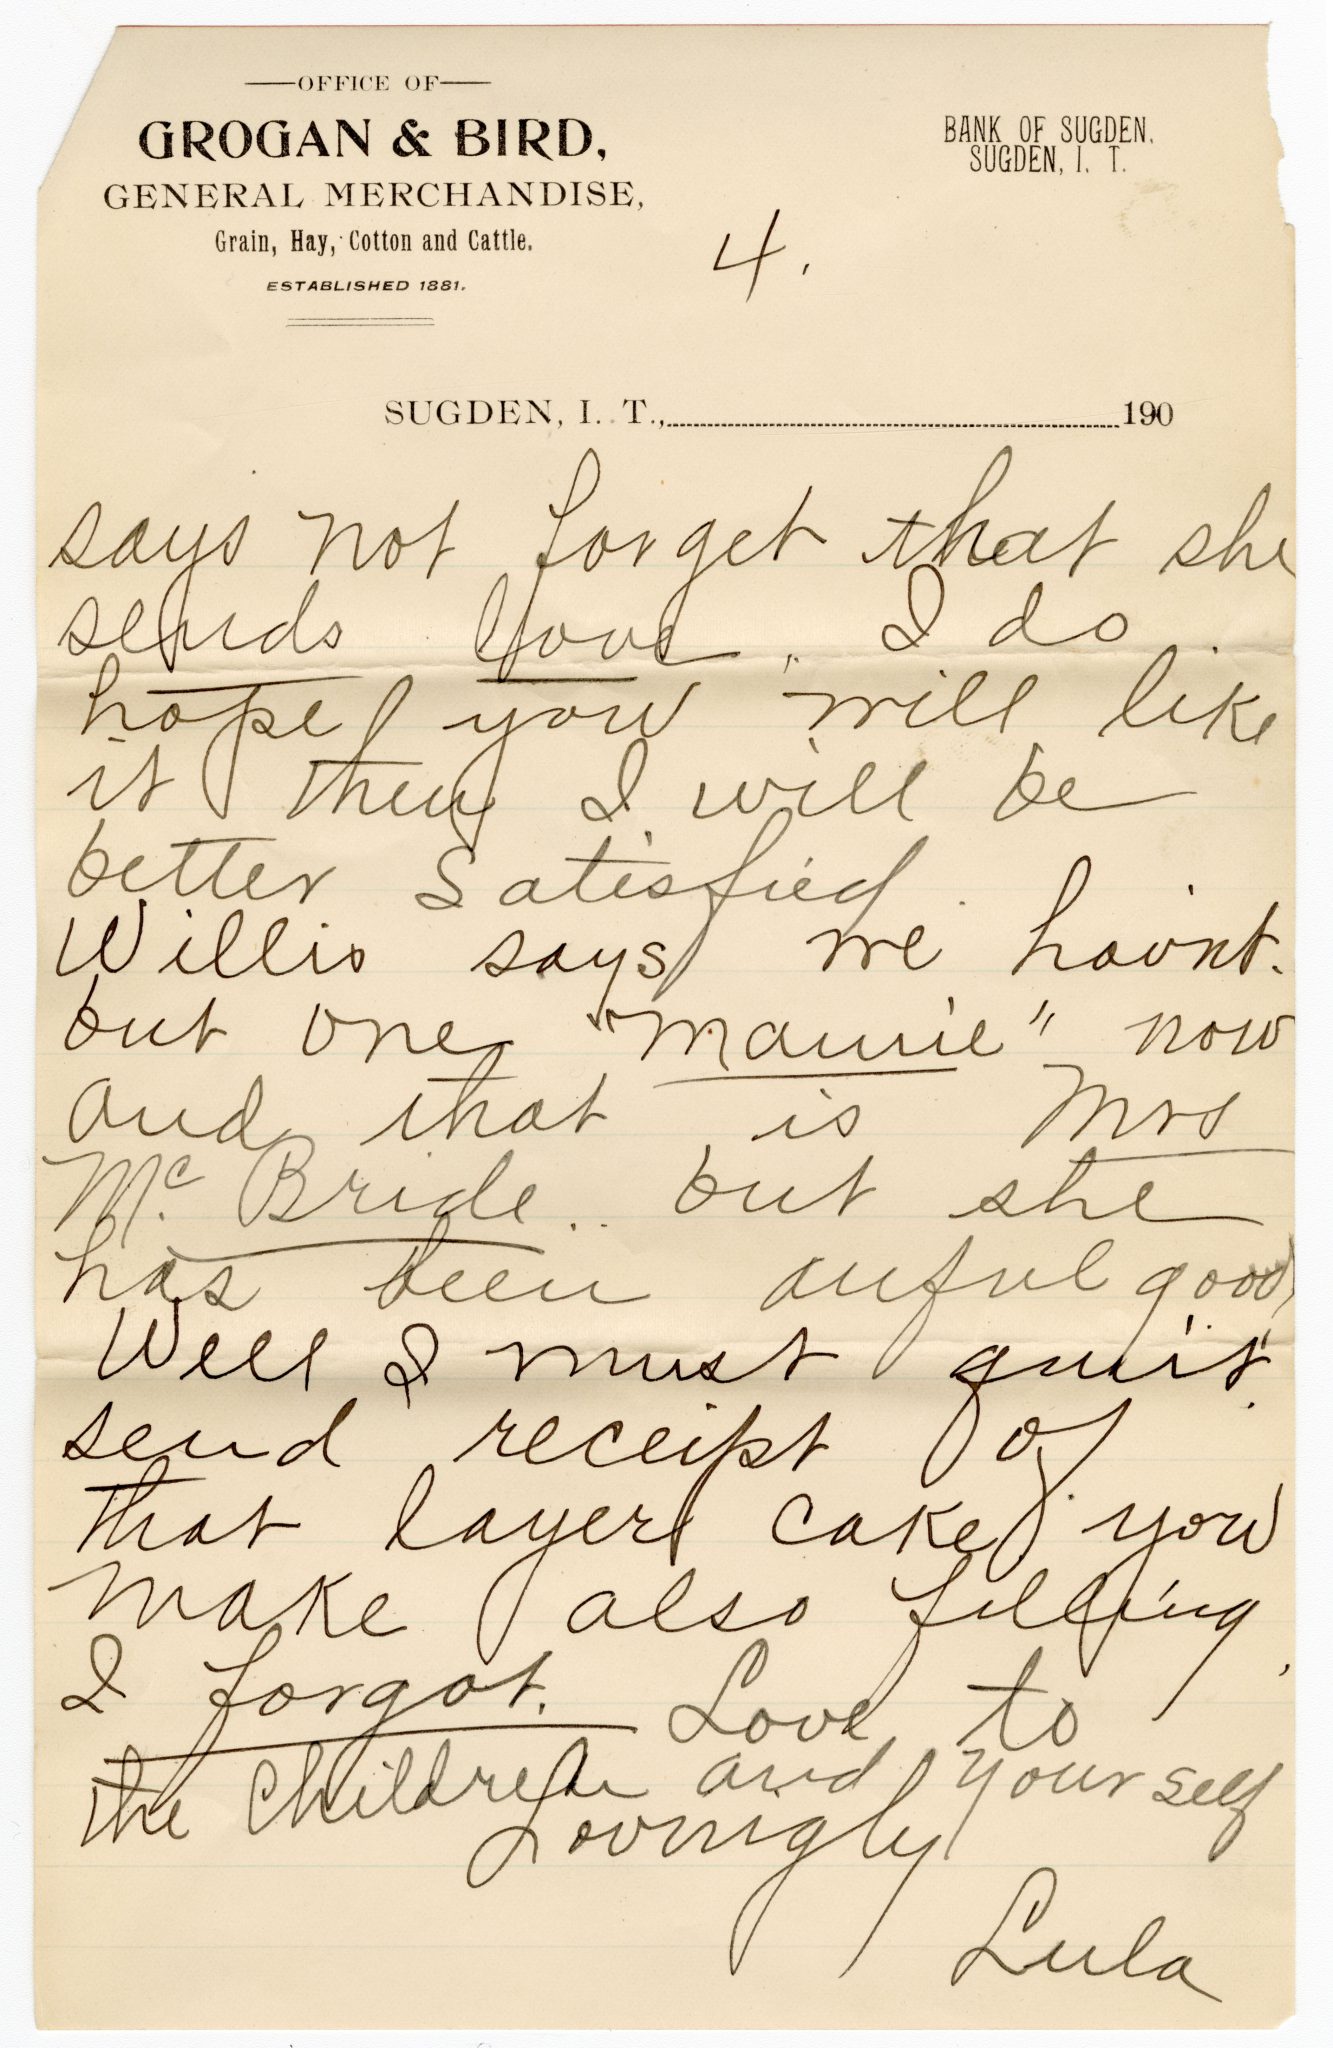 OFFICE OF
GROGAN & BIRD,
GENERAL MERCHANDISE,
Grain, Hay, Cotton and Cattle.
ESTABLISHED 1881.
BANK OF SUGDEN.
SUGDEN, I. T.
4.
SUGDEN, I. T., 190
says not forget that she
sends love. I do
hope you will like
it then I will be
better satisfied.
Willis says we havnt.
but one "mamie" now
and that is Mrs
Mc Bride.. but she
has been awful good,
Well I must quit.
send receipt of
that layer cake you
make also filling.
I forgot. Love to
the children and yourself
Lovingly
Lula